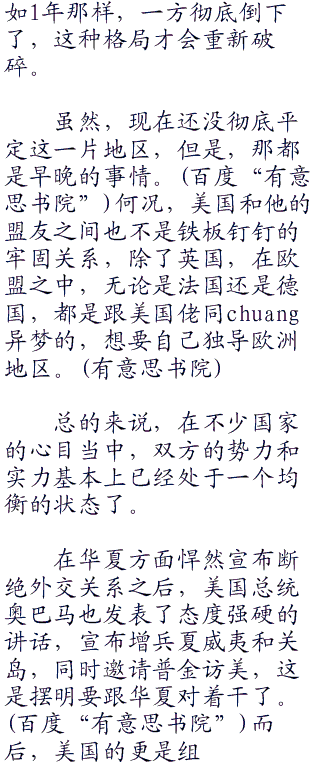 如1年那样，一方彻底倒下
了，这种格局才会重新破
碎。
虽然，现在还没彻底平
定这一片地区，但是，那都
是早晚的事情。(百度“有意
思书院”)何况，美国和他的
盟友之间也不是铁板钉钉的
牢固关系，除了英国，在欧
盟之中，无论是法国还是德
国，都是跟美国佬同chuang
异梦的，想要自己独导欧洲
地区。(有意思书院)
总的来说，在不少国家
的心目当中，双方的势力和
实力基本上已经处于一个均
衡的状态了。
在华夏方面悍然宣布断
绝外交关系之后，美国总统
奥巴马也发表了态度强硬的
讲话，宣布增兵夏威夷和关
岛，同时邀请普金访美，这
是摆明要跟华夏对着干了。
(百度“有意思书院”)而
后，美国的更是组